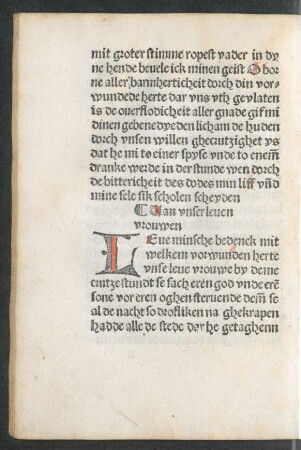 mit groter stimme ropest vader in dy
ne hende beuele ick minen geist O bor
ne aller barmherticheit dorch din vor-
wundede herte dar vns vth gevlaten
is de ouerflodicheit aller gnade gif mi
dinen gebenedyeden licham de huden
dorch vnsen willen ghecrutzighet ys
dat he mi to einer spyse vnde to enem
dranke werde in der stunde wen dorch
de bittericheit des dodes min liff vnd
mine sele sik scholen scheyden
Van vnser leuen
vrouwen
LEue minsche bedenck mit
welkem vorwunden herte
vnse leue vrouwe by deme
crutze stundt se sach eren god vnde eren
sone vor eren oghen steruende dem se
al de nacht so drofliken na ghekrapen
hadde alle de stede dar he getaghenn